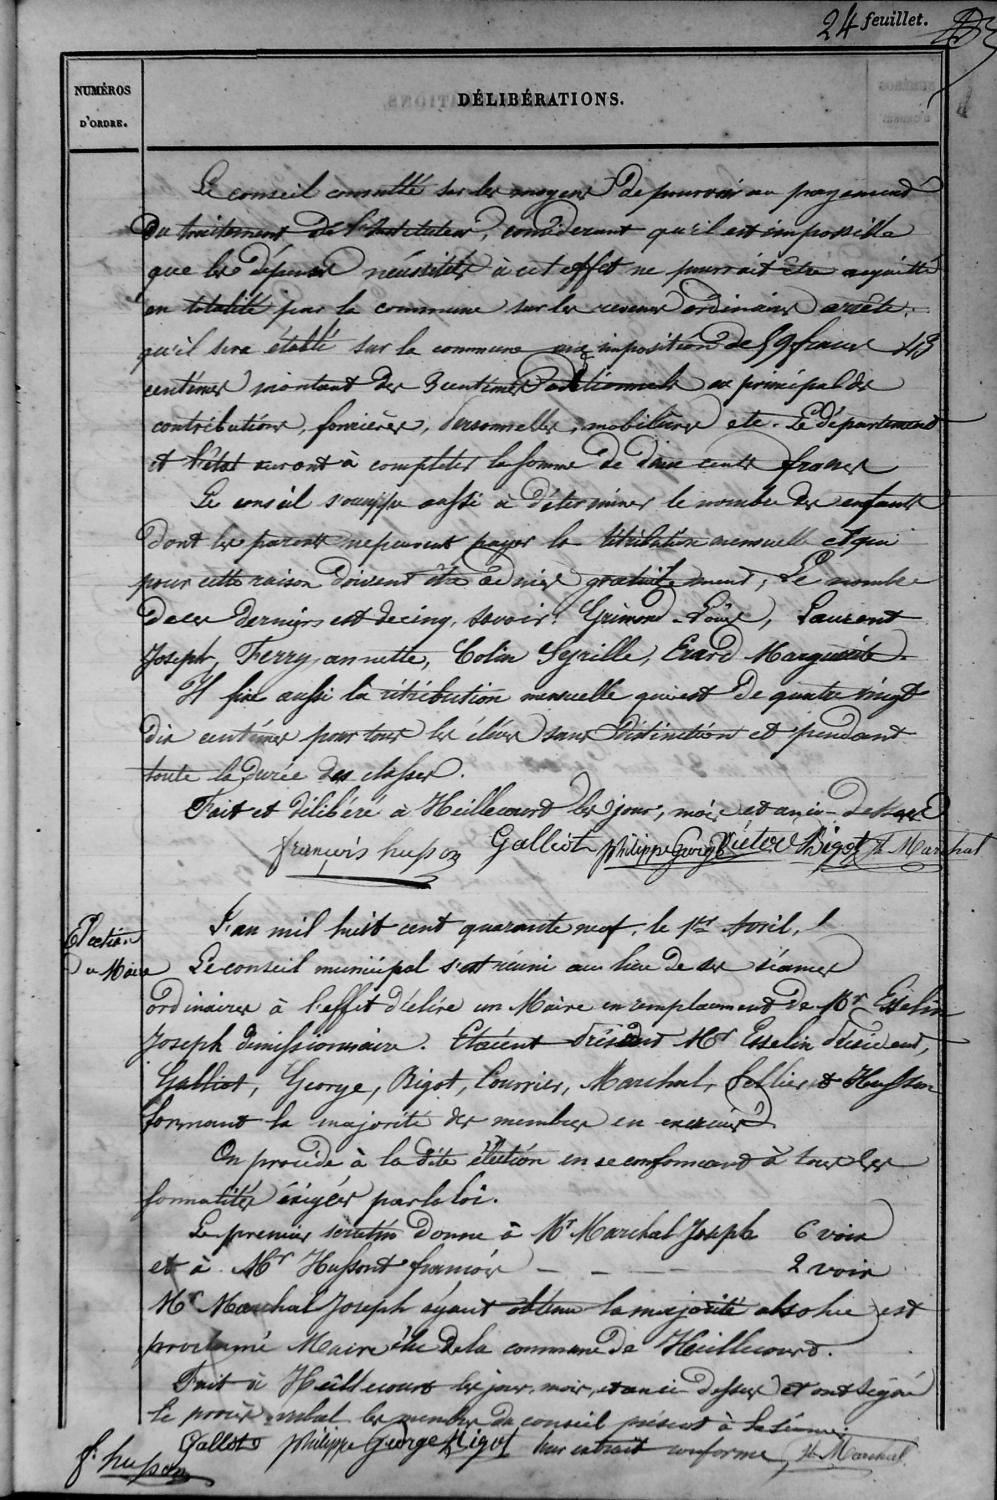 24 feuillet.
NUMÉROS
D'ORDRE.
DÉLIBÉRATIONS.
Le conseil consulté sur les moyens de pourvoir au payement
du traitement de l'Instituteur, considerant qu'il est impossible
que les dépenses néussités à cet effet ne pourrait être acquitté
en totalité par la commune sur les revenus ordinaires arrête.
qu'il sera établi sur la commune une imposition de 59 francs 43
centimes montant des 3 centimes additionnels au principal des
contributions, foncières, personnelles, mobilières etc. Le département
et l'état auront à completer la somme de deux cents francs
Le conseil s'occuppe aussi à déterminer le nombre des enfants
dont les parents ne peuvent payer la rétribution mensuelle et qui
pour cette raison doivent être admis gratuitement, Le nombre
de ces derniers est de cinq, savoir: Grimond Louis, Laurent
Joseph, Ferry, annette, Colin Syrille, Erard Marguerite.
Il fixe aussi la rétribution mensuelle qui est de quatre vingt
dix centimes pour tous les élèves sans distinction et pendant
toute la durée des classes.
Fait et délibéré à Heillecourt les jour, mois et an ci-dessus
françois husson Galliot philippe George Victor Bigot Jh Marchal
Election
du Maire
L'an mil huit cent quarante neuf, le 1er Avril,
Le conseil municipal s'est réuni au lieu de ses séances
ordinaires à l'effet d'élire un Maire en remplacement de Mr Esselin
Joseph dimissionnaire. Etaient présents Mr Esselin président,
Galliot, George, Bigot, Courrier, Marchal, Sellier et Husson
formant la majorité des membres en exercice
On procède à la dite élection en se conformant à tous les
formalités éxigées par la loi.
Le premier scrutin donne à Mr Marchal Joseph 6 voix
et à Mr Hussont françois - - - 2 voix
Mr Marchal Joseph ayant obtenu la majorité absolue est
proclamé Maire élu de la commune de Heillecourt.
Fait à Heillecourt les jour, mois, et an ci-dessus et ont signé
le procès verbal les membres du conseil présent à la séance.
Galliot philippe George Bigot Pour extrait conforme, Jh Marchal
f. husson